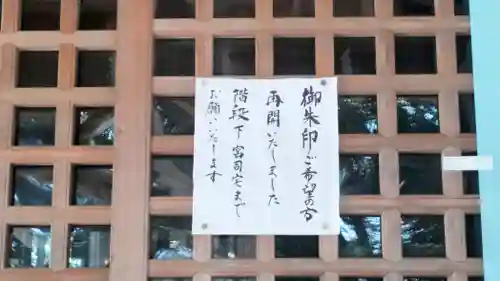 御朱印ご希望の方
再開いたしました
階段下宮司宅まで
お願いいたします